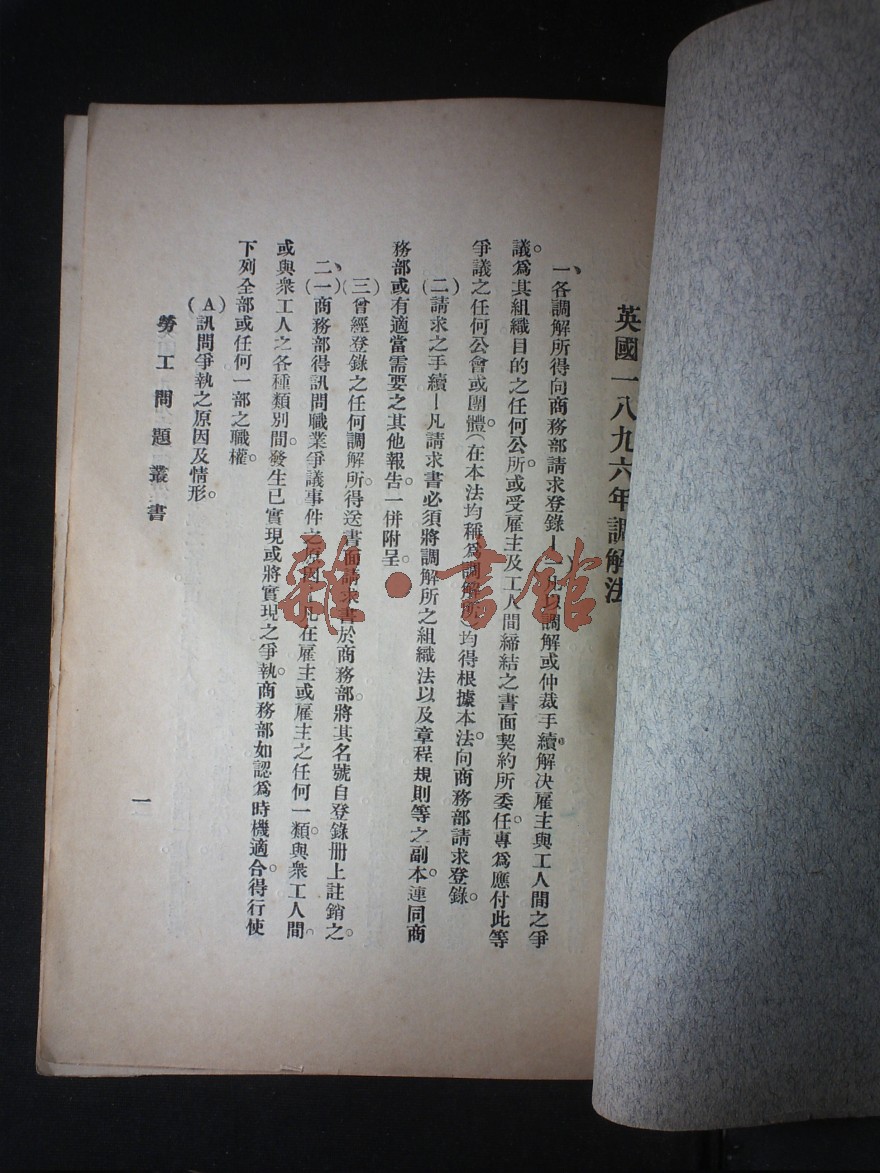 英國一八九六年調解法
一、各調解所得向商務部請求登錄—(一)凡以調解或仲裁手續解決雇主與工人間之爭
議爲其組織目的之任何公所。或受雇主及工人間締結之書面契約所委任。專爲應付此等
爭議之任何公會或團體。(在本法均稱爲調解所)均得根據本法。向商務部請求登錄。
(二)請求之手續—凡請求書必須將調解所之組織法以及章程規則等之副本。連同商
務部或有適當需要之其他報告一併附呈。
(三)曾經登錄之任何調解所。得送書面請求書於商務部。將其名號自登錄册上註銷之。
二、(一)商務部得訊問職業爭議事件之原因—凡在雇主或雇主之任何一類。與衆工人間。
或與衆工人之各種類別間。發生已實現或將實現之爭執。商務部如認爲時機適合。得行使
下列全部或任何一部之職權。
(A)訊問爭執之原因及情形。
勞工問題叢書
一
雜·書館